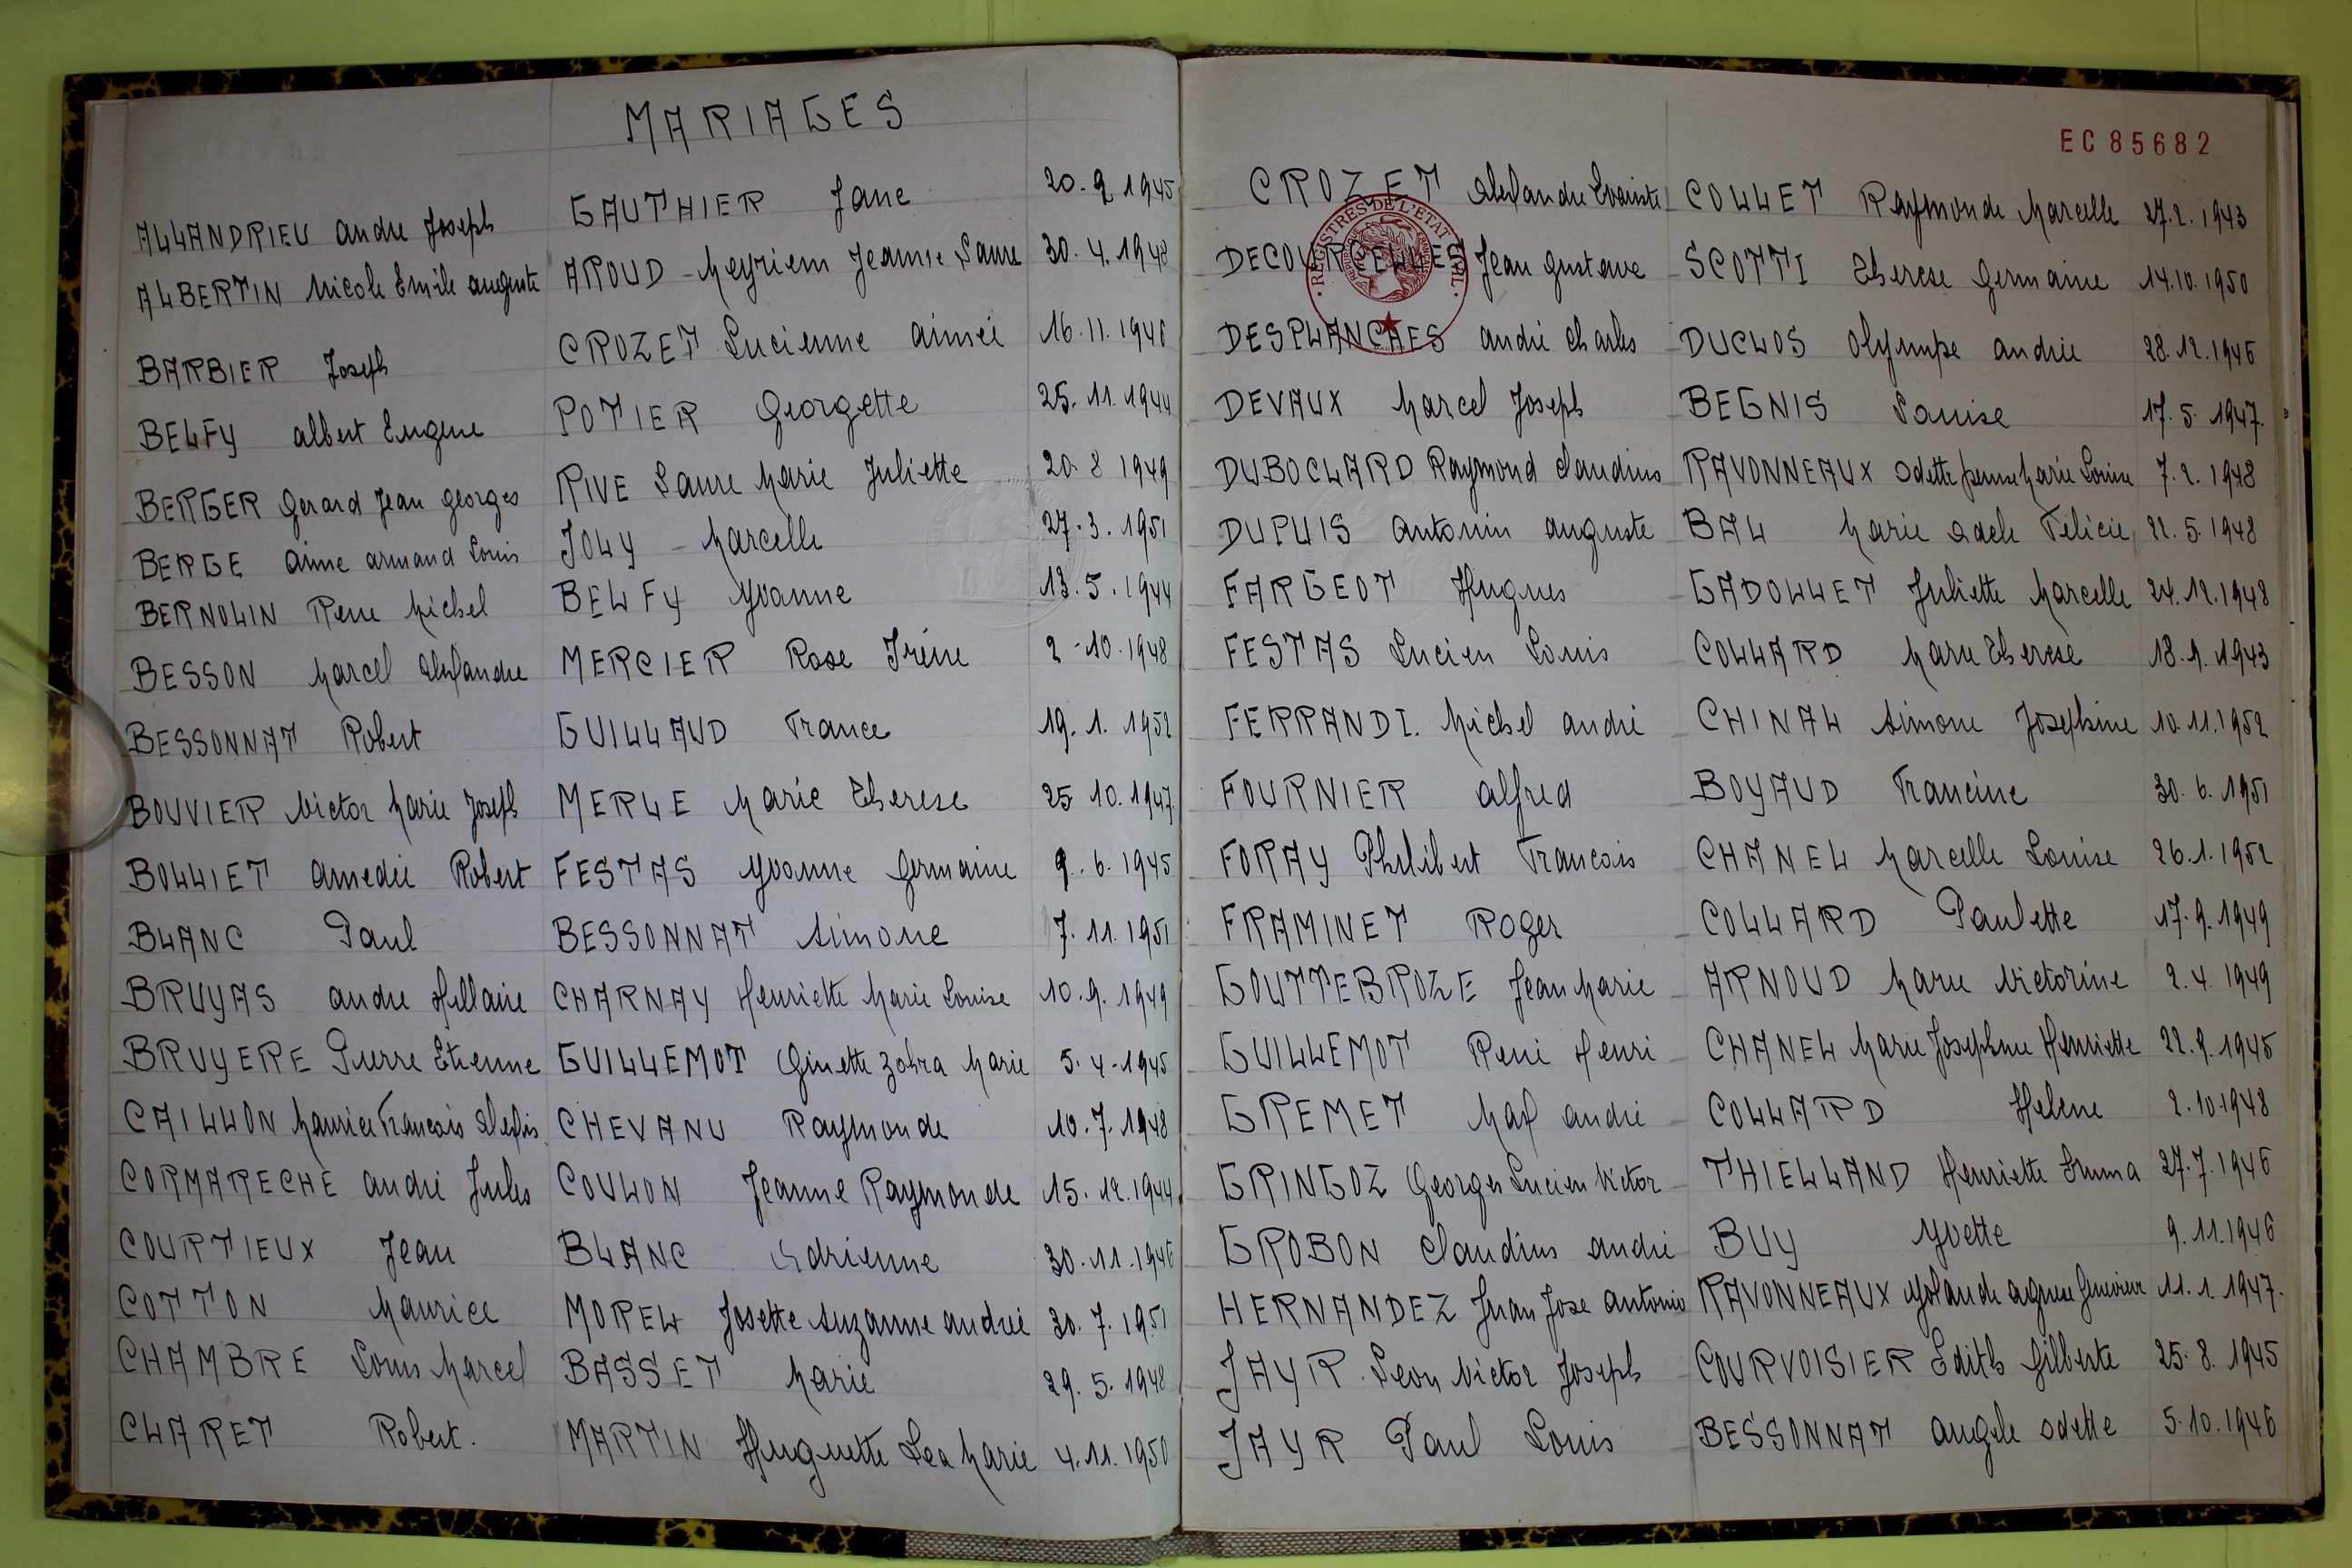 MARIAGES
ALLANDRIEU andre Joseph GAUTHIER Jane 20.9.1945
ALBERTIN Nicole Emile auguste AROUD Meyriem Jeanne Laure 30.4.1948
BARBIER Joseph CROZET Lucienne aimée 16.11.1946
BELFY albert Eugene POTIER Georgette 25.11.1944
BERGER Gerard Jean georges RIVE Laure Marie Juliette 20 8 1949
BERGE aime armand Louis JOLY Marcelle 27.3.1951
BERNOLIN Rene Michel BELFY Yvonne 13.5.1944
BESSON Marcel Alexandre MERCIER Rose Irène 2-10.1948
BESSONNAT Robert GUILLAUD France 19.1.1952
BOUVIER Victor Marie Joseph MERLE Marie Therese 25 10.1947
BOLLIET amedée Robert FESTAS Yvonne Germaine 9.6.1945
BLANC Paul BESSONNAT Simone 7.11.1951
BRUYAS andre Hillaire CHARNAY Henriette Marie Louise 10.9.1949
BRUYERE Pierre Etienne GUILLEMOT Ginette Zohra Marie 5.4.1945
CAILLON Maurice Francois Alexis CHEVANU Raymonde 10.7.1948
CORMARECHE andré Jules COULON Jeanne Raymonde 15.12.1944
COURTIEUX Jean BLANC Adrienne 30.11.1946
COTTON Maurice MOREL Josette Suzanne andrée 30.7.1951
CHAMBRE Louis Marcel BASSET Marie 29.5.1948
CLARET Robert. MARTIN Huguette Lea Marie 4.11.1950
EC 85682
REGISTRES DE L'ETAT CIVIL
CROZET Alexandre Evariste COLLET Raymonde Marcelle 27.2.1943
DECOURCELLES Jean Gustave SCOTTI Therese Germaine 14.10.1950
DESPLANCHES andré Charles DUCLOS Olympe andrée 28.12.1946
DEVAUX Marcel Joseph BEGNIS Louise 17.5.1947.
DUBOCLARD Raymond Claudius RAVONNEAUX Odette Jeanne Marie Louise 7.2.1948
DUPUIS Antonin auguste BAL Marie Adele Félicie 22.5.1948
FARGEOT Hugues GADOLLET Juliette Marcelle 24.12.1948
FESTAS Lucien Louis COLLARD Marie Therese 18.9.1943
FERRANDI. Michel andré CHINAL Simone Josephine 10.11.1952
FOURNIER alfred BOYAUD Francine 30.6.1951
FORAY Philibert Francois CHANEL Marcelle Louise 26.1.1952
FRAMINET Roger COLLARD Paulette 17.9.1949
GOUTTEBROZE Jean Marie ARNOUD Marie Victorine 2.4.1949
GUILLEMOT René Henri CHANEL Marie Josephine Henriette 22.9.1945
GREMET Max andré COLLARD Helene 2.10.1948
GRINGOZ Georges Lucien Victor THIELLAND Henriette Emma 27.7.1946
GROBON Claudius andré BUY Yvette 9.11.1946
HERNANDEZ Juan Jose antonio RAVONNEAUX Yolande agnese Genevieve 11.1.1947.
JAYR Leon Victor Joseph COURVOISIER Edith Gilberte 25.8.1945
JAYR Paul Louis BESSONNAT angele Odette 5.10.1946